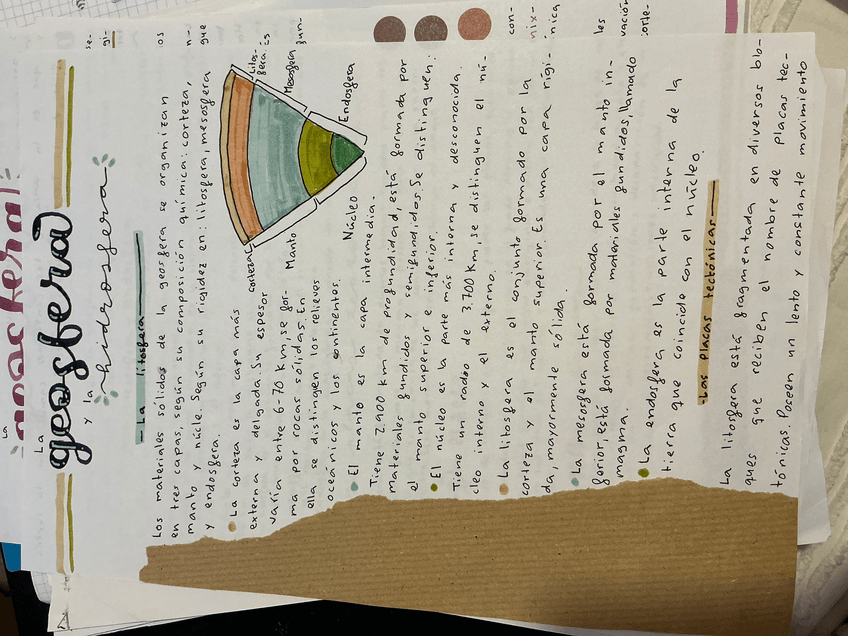 La
geosfera
y la
hidrosfera
- La litosfera
Los materiales sólidos de la geosfera se organizan
en tres capas, según su composición química: corteza,
manto y núcle. Según su rigidez en: litosfera, mesosfera
y endosfera.
La corteza es la capa más
externa y delgada. Su espesor
varía entre 6-70 km, se for-
ma por rocas sólidas. En
ella se distingen los relieves
oceánicos y los continentes.
Corteza
Manto
Núcleo
Litos-
fera
Mesosfera
Endosfera
El manto es la capa intermedia.
Tiene 2.900 km de profundidad, está formada por
materiales fundidos y semifundidos. Se distinguen:
el manto superior e inferior.
El núcleo es la parte más interna y desconocida.
Tiene un radeo de 3.700 km, se distinguen el nú-
cleo interno y el externo.
La litosfera es el conjunto formado por la
corteza y el manto superior. Es una capa rígi-
da, mayormente sólida.
La mesosfera está formada por el manto in-
ferior, está formada por materiales fundidos, llamado
magma.
La endosfera es la parte interna de la
tierra que coincide con el núcleo.
-Las placas tectónicas-
La litosfera está fragmentada en diversos blo-
ques que reciben el nombre de placas tec-
tónicas. Poseen un lento y constante movimiento